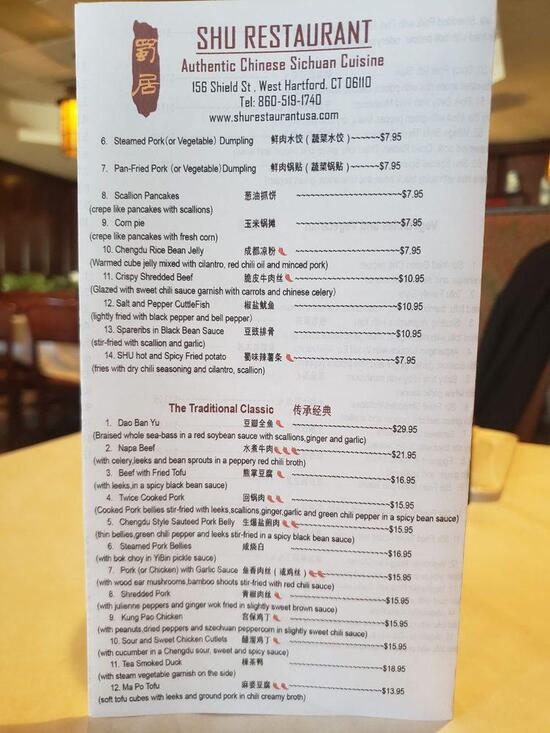 蜀居
SHU RESTAURANT
Authentic Chinese Sichuan Cuisine
156 Shield St , West Hartford, CT 06110
Tel: 860-519-1740
www.shurestaurantusa.com
6. Steamed Pork(or Vegetable) Dumpling 鲜肉水饺（蔬菜水饺）~~~~~~$7.95
7. Pan-Fried Pork (or Vegetable)Dumpling 鲜肉锅贴（蔬菜锅贴）~~~~~$7.95
8. Scallion Pancakes 葱油抓饼 ~~~~~~~~~~$7.95
(crepe like pancakes with scallions)
9. Corn pie 玉米锅摊 ~~~~~~~~~~$7.95
(crepe like pancakes with fresh corn)
10. Chengdu Rice Bean Jelly 成都凉粉 ~~~~~~~~~~$7.95
(Warmed cube jelly mixed with cilantro, red chili oil and minced pork)
11. Crispy Shredded Beef 脆皮牛肉丝 ~~~~~~~~~~$10.95
(Glazed with sweet chili sauce garnish with carrots and chinese celery)
12. Salt and Pepper CuttleFish 椒盐鱿鱼 ~~~~~~~~~~$10.95
(lightly fried with black pepper and bell pepper)
13. Spareribs in Black Bean Sauce 豆豉排骨 ~~~~~~~~~~$10.95
(stir-fried with scallion and garlic)
14. SHU hot and Spicy Fried potato 蜀味辣薯条 ~~~~~~~~~~$7.95
(fries with dry chili seasoning and cilantro, scallion)
The Traditional Classic 传承经典
1. Dao Ban Yu 豆瓣全鱼 ~~~~~~~~~~$29.95
(Braised whole sea-bass in a red soybean sauce with scallions,ginger and garlic)
2. Napa Beef 水煮牛肉 ~~~~~~~~~~$21.95
(with celery,leeks and bean sprouts in a peppery red chili broth)
3. Beef with Fried Tofu 熊掌豆腐 ~~~~~~~~~~$16.95
(with leeks,in a spicy black bean sauce)
4. Twice Cooked Pork 回锅肉 ~~~~~~~~~~$15.95
(Cooked Pork bellies stir-fried with leeks,scallions,ginger,garlic and green chili pepper in a spicy bean sauce)
5. Chengdu Style Sauteed Pork Belly 生爆盐煎肉 ~~~~~~~~~~$15.95
(thin bellies,green chili pepper and leeks stir-fried in a spicy black bean sauce)
6. Steamed Pork Bellies 咸烧白 ~~~~~~~~~~$16.95
(with bok choy in YiBin pickle sauce)
7. Pork (or Chicken) with Garlic Sauce 鱼香肉丝（或鸡丝） ~~~~~~~~~~$15.95
(with wood ear mushrooms,bamboo shoots stir-fried with red chili sauce)
8. Shredded Pork 青椒肉丝 ~~~~~~~~~~$15.95
(with julienne peppers and ginger wok fried in slightly sweet brown sauce)
9. Kung Pao Chicken 宫保鸡丁 ~~~~~~~~~~$15.95
(with peanuts,dried peppers and szechuan peppercorn in slightly sweet chili sauce)
10. Sour and Sweet Chicken Cutlets 醋溜鸡丁 ~~~~~~~~~~$15.95
(with cucumber in a Chengdu sour, sweet and spicy sauce)
11. Tea Smoked Duck 樟茶鸭 ~~~~~~~~~~$18.95
(with steam vegetable garnish on the side)
12. Ma Po Tofu 麻婆豆腐 ~~~~~~~~~~$13.95
(soft tofu cubes with leeks and ground pork in chili creamy broth)